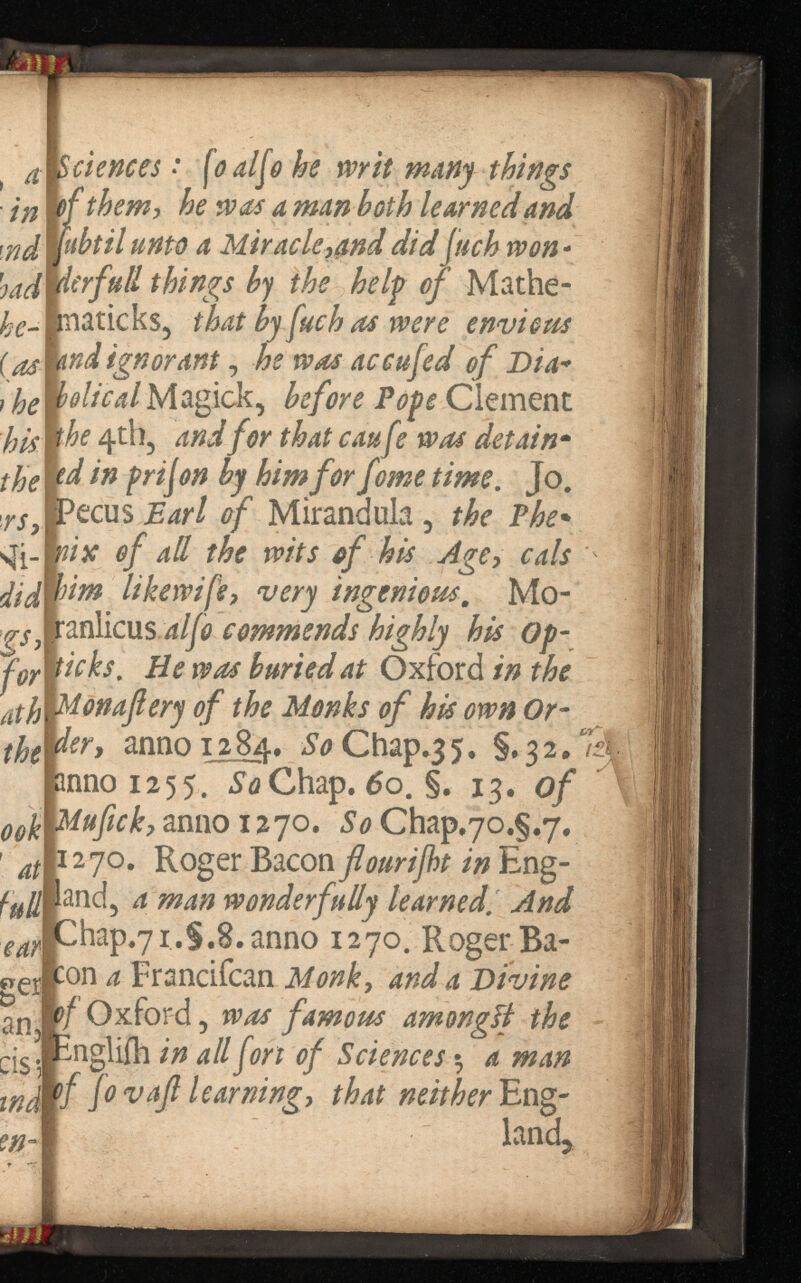 Sciences : ſo alſo he writ many things
of them, he was a man both learned and
ſubtil unto a Miracle, and did ſuch won-
derfull things by the help of Mathe-
maticks, that by ſuch as were envious
and ignorant, he was accuſed of Dia-
bolical Magick, before Pope Clement
the 4th, and for that cauſe was detain-
ed in priſon by him for ſome time. Jo.
Pecus Earl of Mirandula, the Phe-
nix of all the wits of his Age, cals
him likewiſe, very ingenious. Mo-
ranlicus alſo commends highly his Op-
ticks. He was buried at Oxford in the
Monaſtery of the Monks of his own Or-
der, anno 1284. So Chap.35. §.32.
anno 1255. So Chap. 60. §. 13. Of
Muſick, anno 1270. So Chap.70.§.7.
1270. Roger Bacon flouriſht in Eng-
land, a man wonderfully learned. And
Chap.71.§.8. anno 1270. Roger Ba-
con a Franciſcan Monk, and a Divine
of Oxford, was famous amongſt the
Engliſh in all ſort of Sciences; a man
of ſo vaſt learning, that neither Eng-
land,
a
in
had
he-
(as
he
his
the
did
for
the
at
full
en-